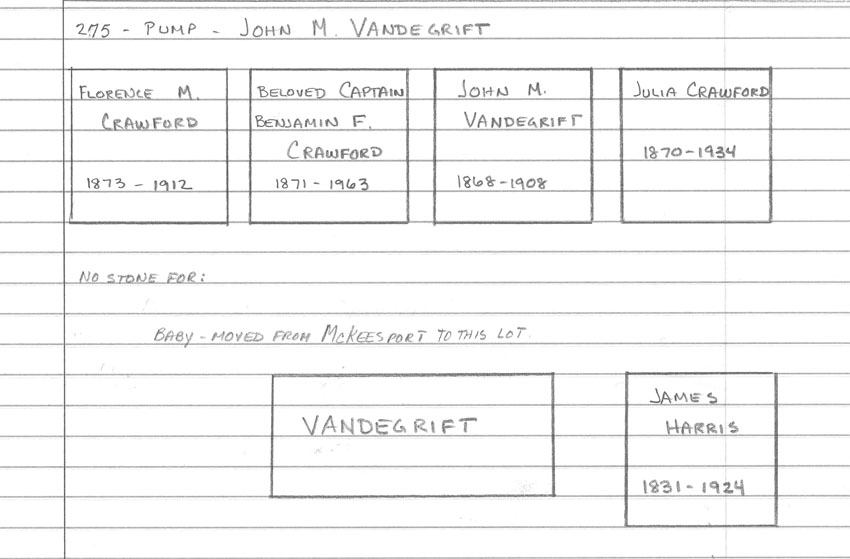 275 - PUMP - JOHN M. VANDEGRIFT
FLORENCE M.
CRAWFORD
1873 - 1912
BELOVED CAPTAIN
BENJAMIN F.
CRAWFORD
1871 - 1963
JOHN M.
VANDEGRIFT
1868 - 1908
JULIA CRAWFORD
1870 - 1934
NO STONE FOR:
BABY - MOVED FROM MCKEESPORT TO THIS LOT.
VANDEGRIFT
JAMES
HARRIS
1831 - 1924